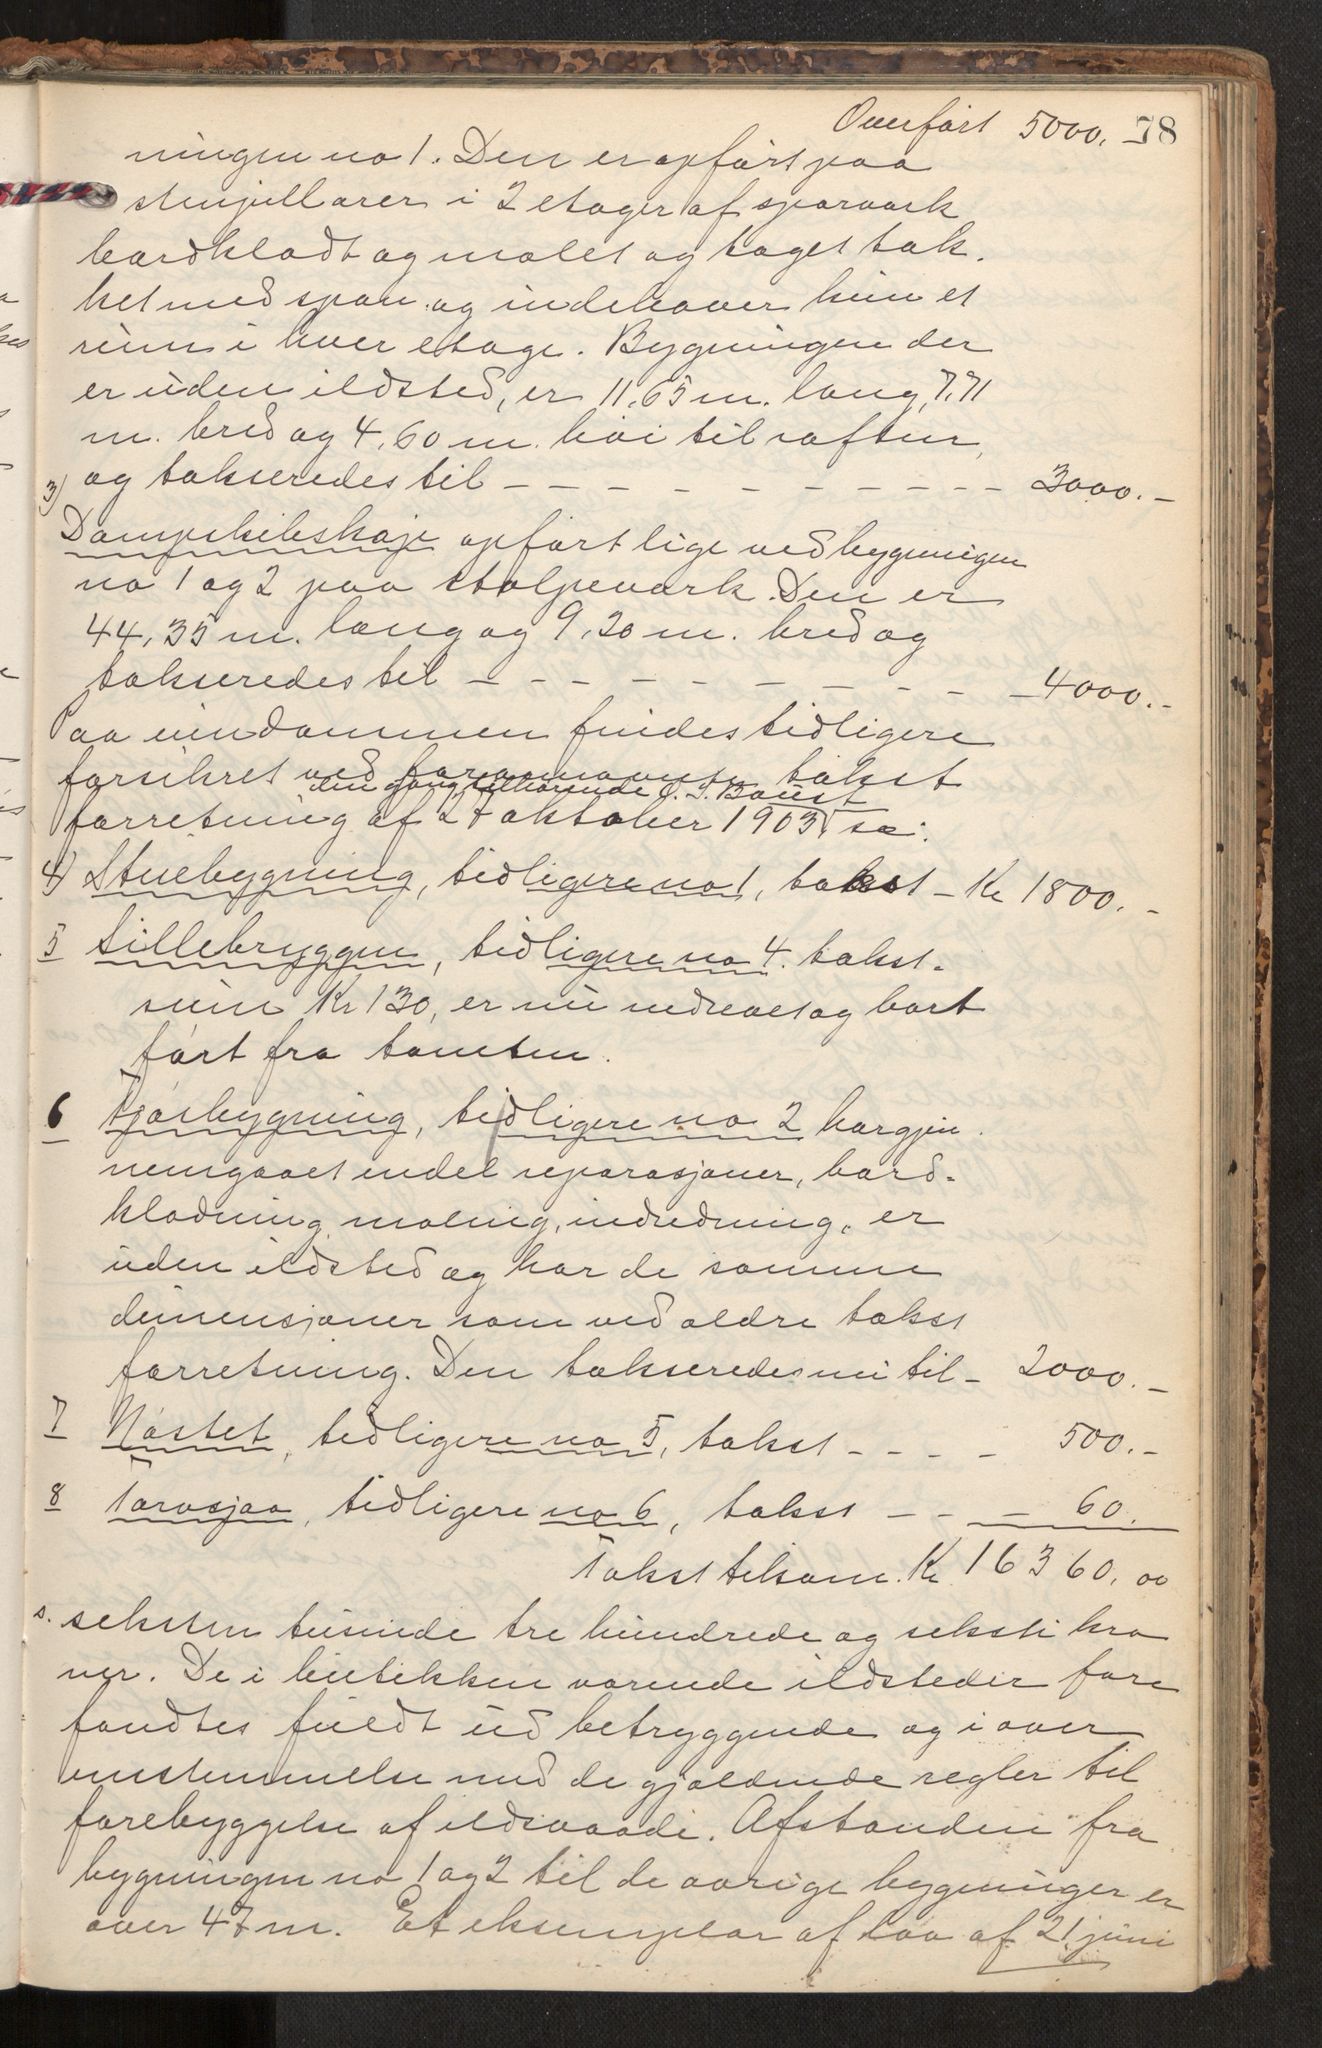 Overført 5000. 78
ningen no 1. Den er opført paa
stenpillarer i 2 etager af sparværk
bordklædt og malet og taget tæk-
ket med spon og indehaver kun et
rum i hver etage. Bygningen der
er uden ildsted, er 11,65 m. lang, 7,71
m. bred og 4,60 m. høi til raften,
og takseredes til — — — — — — — — — — 3000.—
3) Dampskibskaje opført lige ved bygningen
no 1 og 2 paa stolpeværk. Den er
44,35 m. lang og 9,20 m. bred og
takseredes til — — — — — — — — — — 4000.—
Paa eiendommen findes tidligere
forsikret ved forannævnte takst
den gang tilhørende O. S. Baust
forretning af 27 oktober 1903 sa:
4) Stuebygning, tidligere no 1, takst — Kr 1800.—
5 Lillebryggen, tidligere no 4. takst-
sum Kr 130, er nu nedrevet og bort
ført fra tomten.
6 Fjøsbygning, tidligere no 2 har gjen-
nemgaaet endel reparasjoner, bord-
klædning, maling, indredning, er
uden ildsted og har de samme
dimensjoner som ved ældre takst
forretning. Den takseredes nu til — 2000.—
7 Nøstet, tidligere no 5, takst — — — — 500.—
8 Tarasjaa, tidligere no 6, takst — — — 60.
Takst tilsam. Kr 16360,00
s. seksten tusinde tre hundrede og seksti kro
ner. De i butikken værende ildsteder fore
fandtes fuldt ud betryggende og i over
enstemmelse med de gjældende regler til
forebyggelse af ildsvaade. Afstanden fra
bygningen no 1 og 2 til de øvrige bygninger er
over 47 m. Et eksemplar af lov af 21 juni